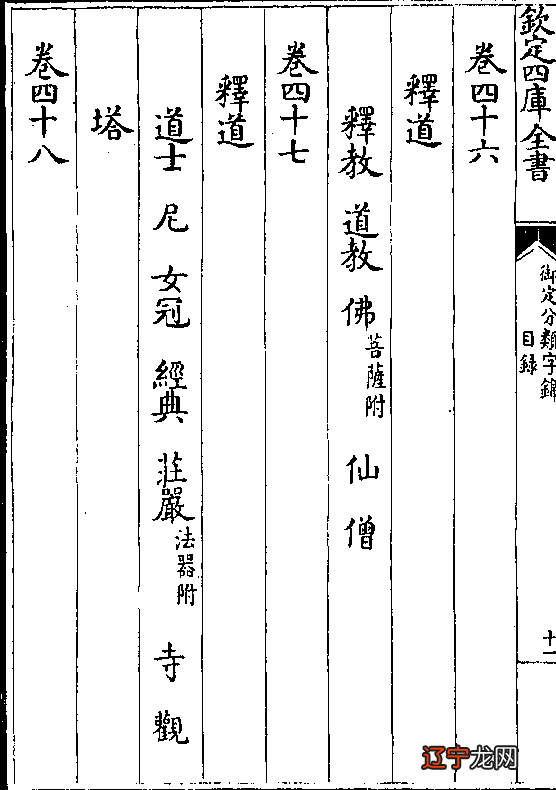 欽定四庫全書
御定分類字錦
目録
十一
卷四十六
釋道
釋教 道教 佛 菩薩附 仙 僧
卷四十七
釋道
道士 尼 女冠 經典 莊嚴 法器附 寺 觀
塔
卷四十八
辽宁龙网